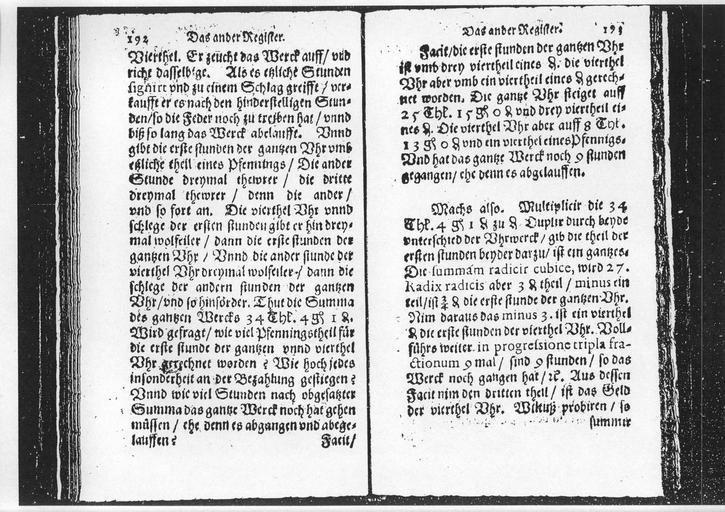 192 Das ander Register.
Vierthel. Er zeucht das Werck auff/ vnd
richt dasselbige. Als es etzliche Stunden
signirt vnd zu einem Schlag greiffe / ver-
kaufft er es nach den hinderstelligen Stun-
den/so die Feder noch zu treiben hat / vnnd
biß so lang das Werck abelauffe. Vnnd
gibt die erste stunden der gantzen Vhr vmb
etzliche theil eines Pfennings / Die ander
Stunde dreymal thewrer / die dritte
dreymal thewrer / denn die ander /
vnd so fort an. Die vierthel Vhr vnnd
schlege der ersten stunden gibt er hin drey-
mal wolfeiler / dann die erste stunden der
gantzen Vhr / Vnnd die ander stunde der
vierthel Vhr dreymal wolfeiler / dann die
schlege der andern stunden der gantzen
Vhr/vnd so hinförder. Thut die Summa
des gantzen Wercks 34 Thl. 4 gl 1 ₰.
Wird gefragt/ wie viel Pfenningstheil für
die erste stunde der gantzen vnnd vierthel
Vhr gerechnet worden ? Wie hoch jedes
insonderheit an der Bezahlung gestiegen ?
Vnnd wie viel Stunden nach obgesatzter
Summa das gantze Werck noch hat gehen
müssen / ehe denn es abgangen vnd abege-
lauffen ? Facit/
Das ander Register. 193
Facit/die erste stunden der gantzen Vhr
ist vmb drey viertheil eines ₰. die vierthel
Vhr aber vmb ein viertheil eines ₰ gerech-
net worden. Die gantze Vhr steiget auff
25 Thl. 15 gl 0 ₰ vnd drey viertheil ei-
nes ₰. Die vierthel Vhr aber auff 8 Thl.
13 gl 0 ₰ vnd ein viertheil eines Pfennigs.
Vnd hat das gantze Werck noch 9 stunden
gegangen/ ehe denn es abgelauffen.
Machs also. Multiplicir die 34
Thl. 4 gl 1 ₰ zu ₰. Duplir durch beyde
vnterschied der Vhrwerck / gib die theil der
ersten stunden beyder darzu/ ist ein gantzes.
Die summam radicir cubice, wird 27.
Radix radicis aber 3 ₰ theil / minus ein
teil/ist ¾ ₰ die erste stunde der gantzen Vhr.
Nim daraus das minus 3. ist ein vierthel
₰ die erste stunden der vierthel Vhr. Voll-
führs weiter in progressione tripla fra-
ctionum 9 mal / sind 9 stunden / so das
Werck noch gangen hat / ꝛc. Aus dessen
Facit nim den dritten theil / ist das Geld
der vierthel Vhr. Wiltuß probiren / so
summir